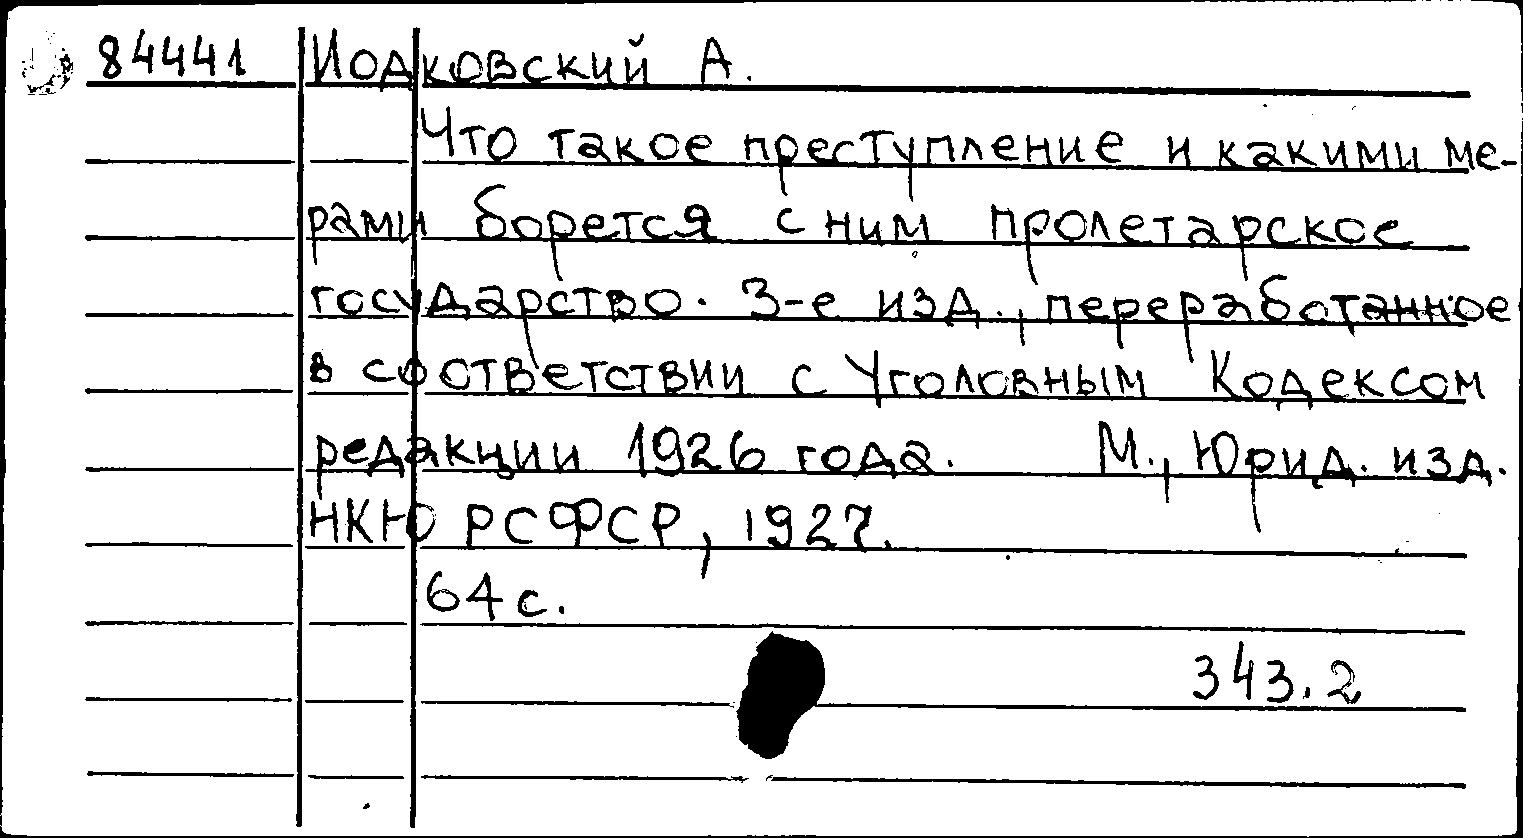 84441 Иодковский А.
Что такое преступление и какими ме-
рами борется с ним пролетарское
государство. 3-е изд., переработанное
в соответствии с Уголовным Кодексом
редакции 1926 года. М., Юрид. изд.
НКЮ РСФСР, 1927.
64 с.
343.2